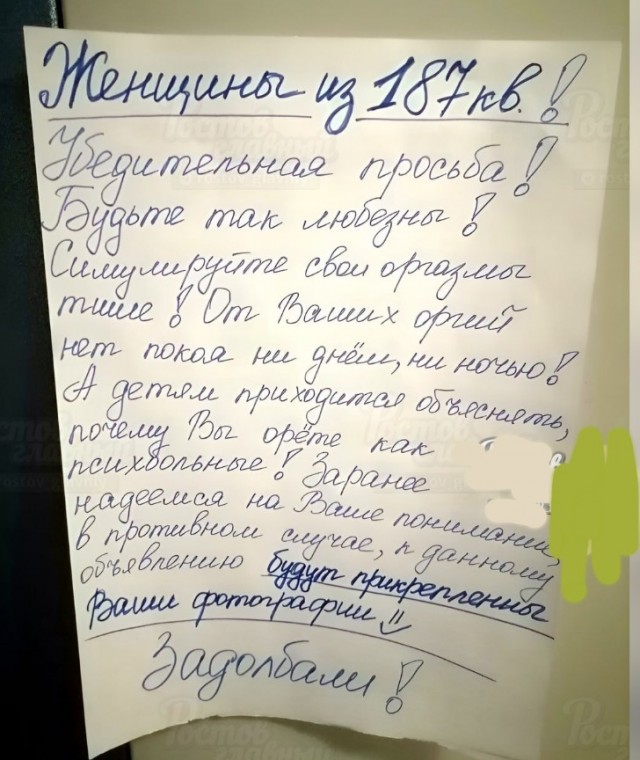 Женщины из 187кв.!
Убедительная просьба!
Будьте так любезны!
Симулируйте свои оргазмы
тише! От Ваших оргий
нет покоя ни днём, ни ночью!
А детям приходится объяснять,
почему Вы орёте как
психбольные! Заранее
надеемся на Ваше понимание,
в противном случае, к данному
объявлению будут прикрепленны
Ваши фотографии
Задолбали!